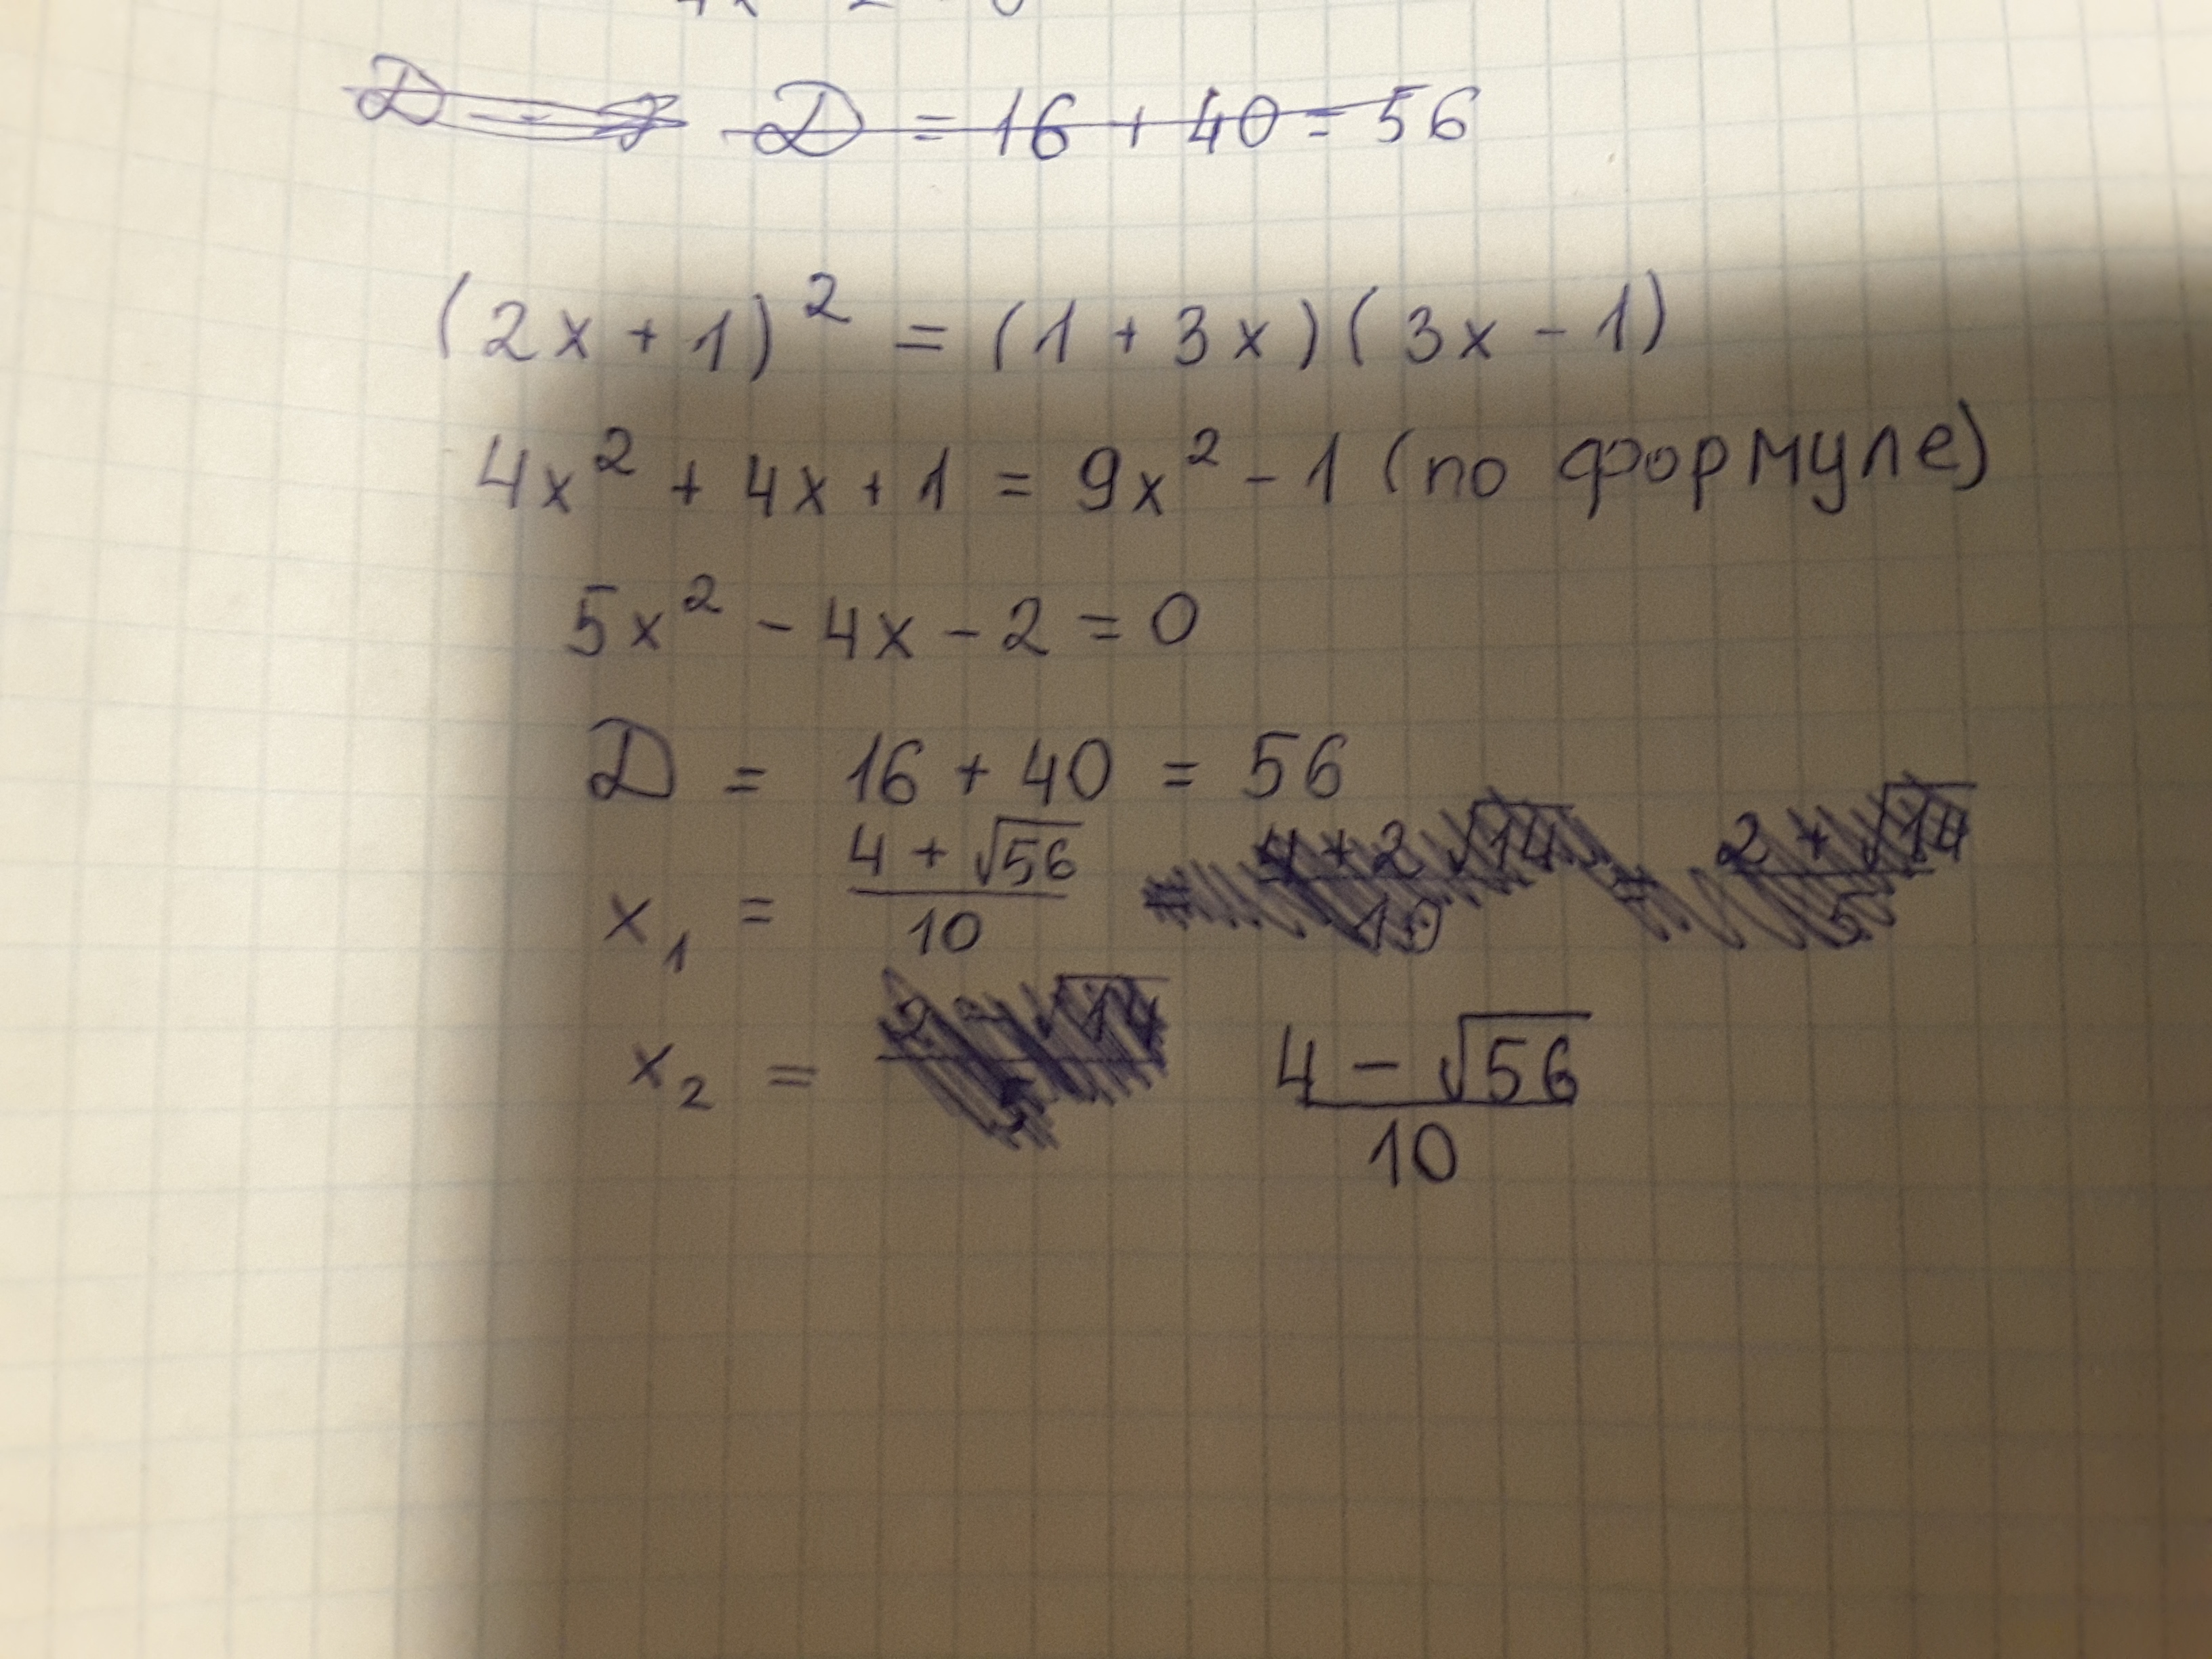 D = 16 + 40 = 56
(2x + 1)² = (1 + 3x)(3x - 1)
4x² + 4x + 1 = 9x² - 1 (по формуле)
5x² - 4x - 2 = 0
D = 16 + 40 = 56
x₁ = (4 + √56)/10 = (4 + 2√14)/10 = (2 + √14)/5
x₂ = (2 - √14)/5 (4 - √56)/10